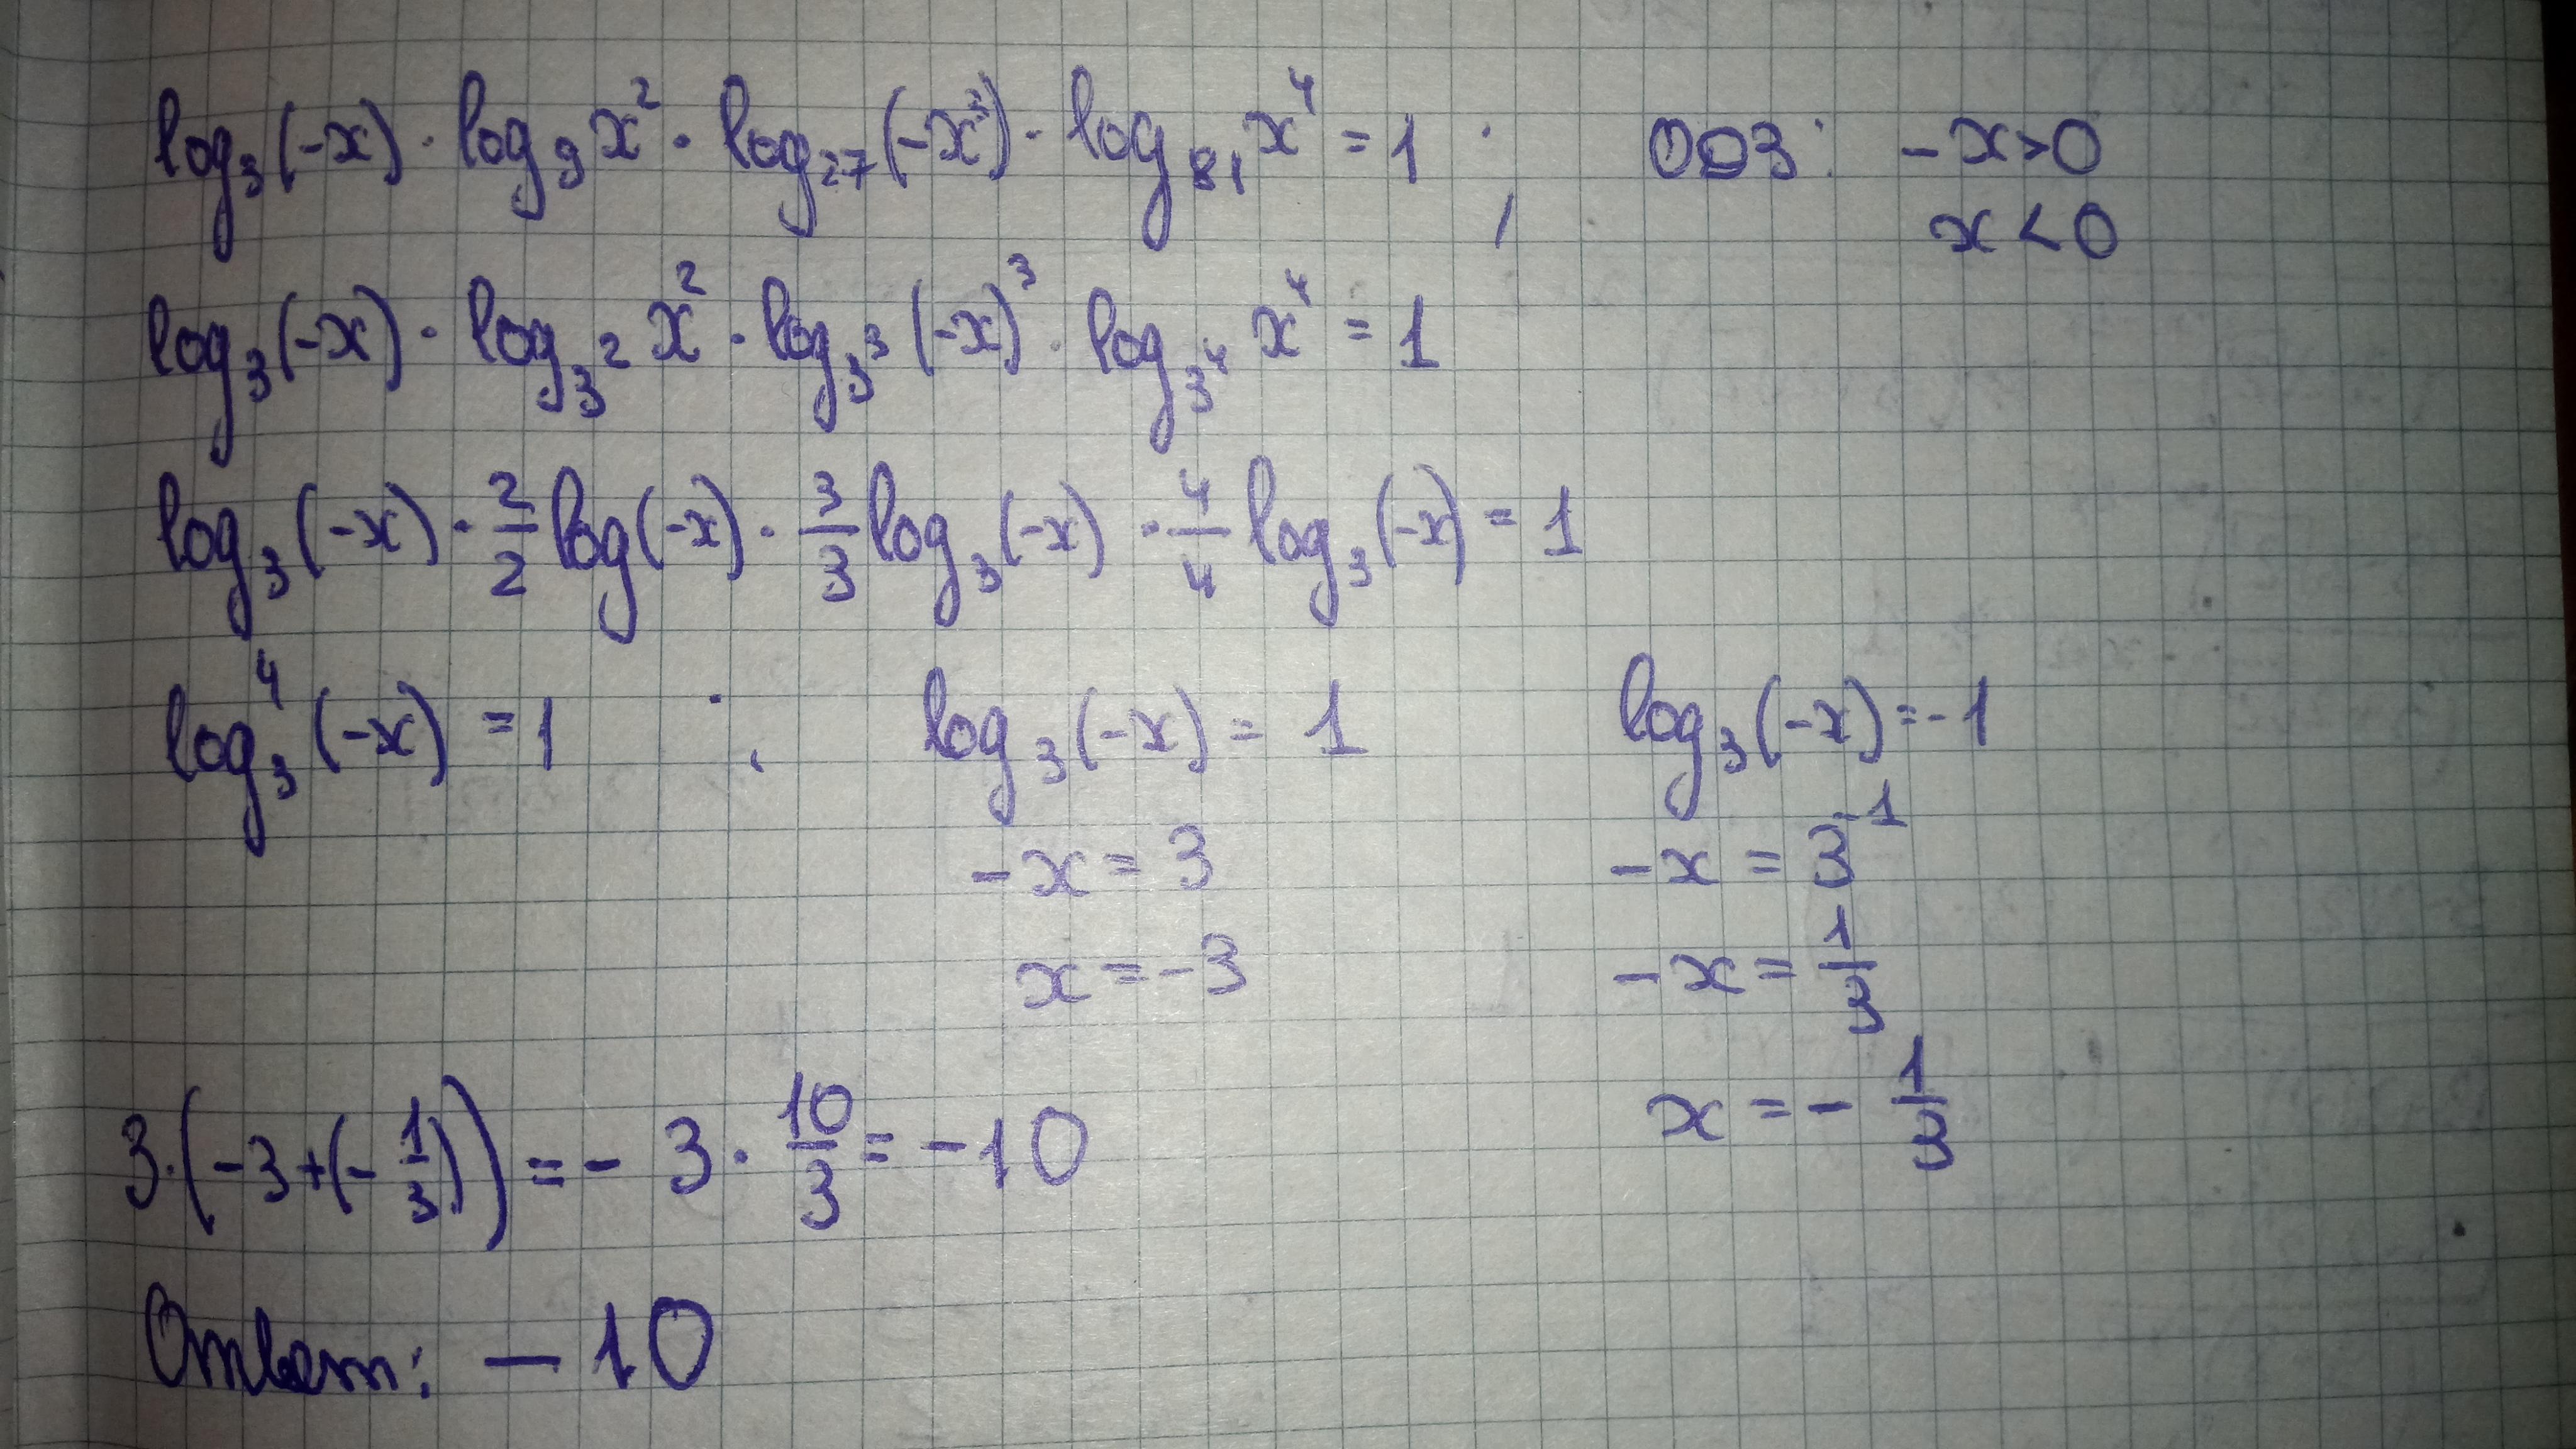 log₃(-x) · log₉x² · log₂₇(-x³) · log₈₁x⁴ = 1 ; ОДЗ: -x>0
x<0
log₃(-x) · log₃²x² · log₃³(-x)³ · log₃⁴x⁴ = 1
log₃(-x) · 2/2 log(-x) · 3/3 log₃(-x) · 4/4 log₃(-x) = 1
log₃⁴(-x) = 1 ; log₃(-x) = 1 log₃(-x) = -1
-x = 3 -x = 3⁻¹
x = -3 -x = 1/3
x = - 1/3
3·(-3+(-1/3)) = - 3 · 10/3 = -10
Ответ: -10